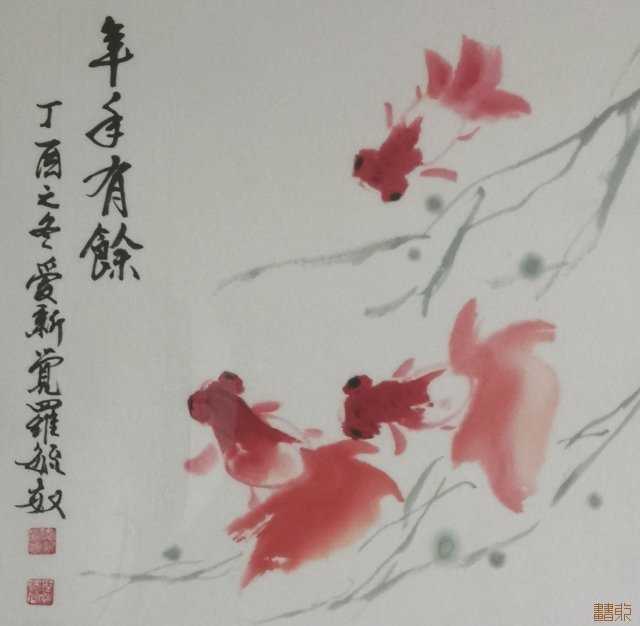 年年有餘
丁酉之冬愛新覺羅毓